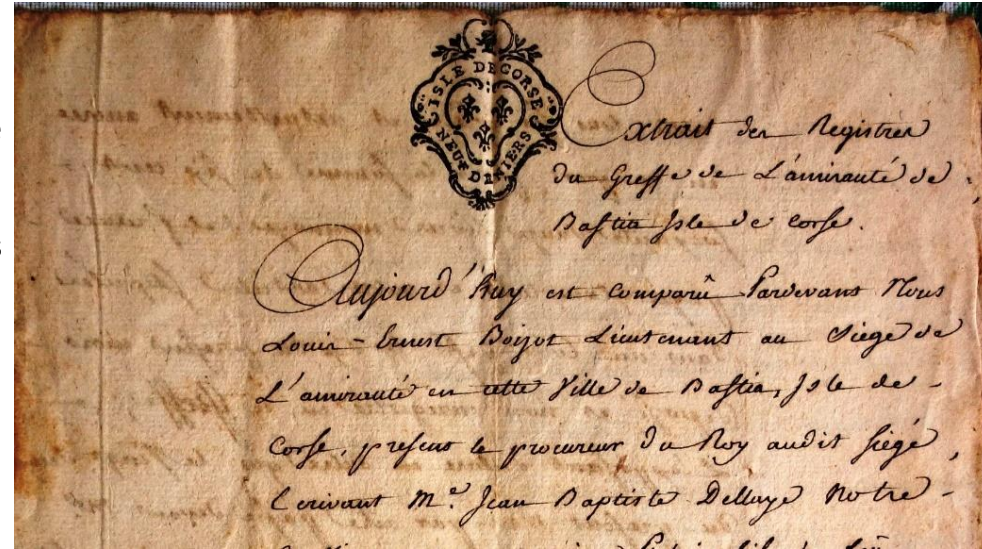 ISLE DE CORSE
NEUF DENIERS
Extrait des Registres
du Greffe de L'amirauté de
Bastia Isle de Corse.
Aujourd'huy est comparû Pardevant Nous
Louis-Ernest Boizot Lieutenant au Siege de
L'amirauté en cette Ville de Bastia, Isle de
Corse, present le procureur du Roy audit siégé,
Ecrivant Me. Jean Baptiste Dellaye Notre